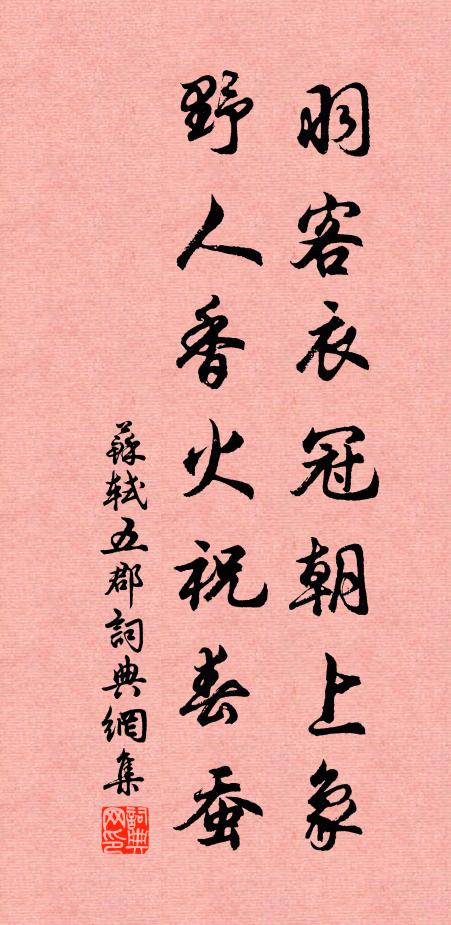 羽客衣冠朝上象
野人香火祝春蚕
蘇軾五郡詞典網集
詞典网印